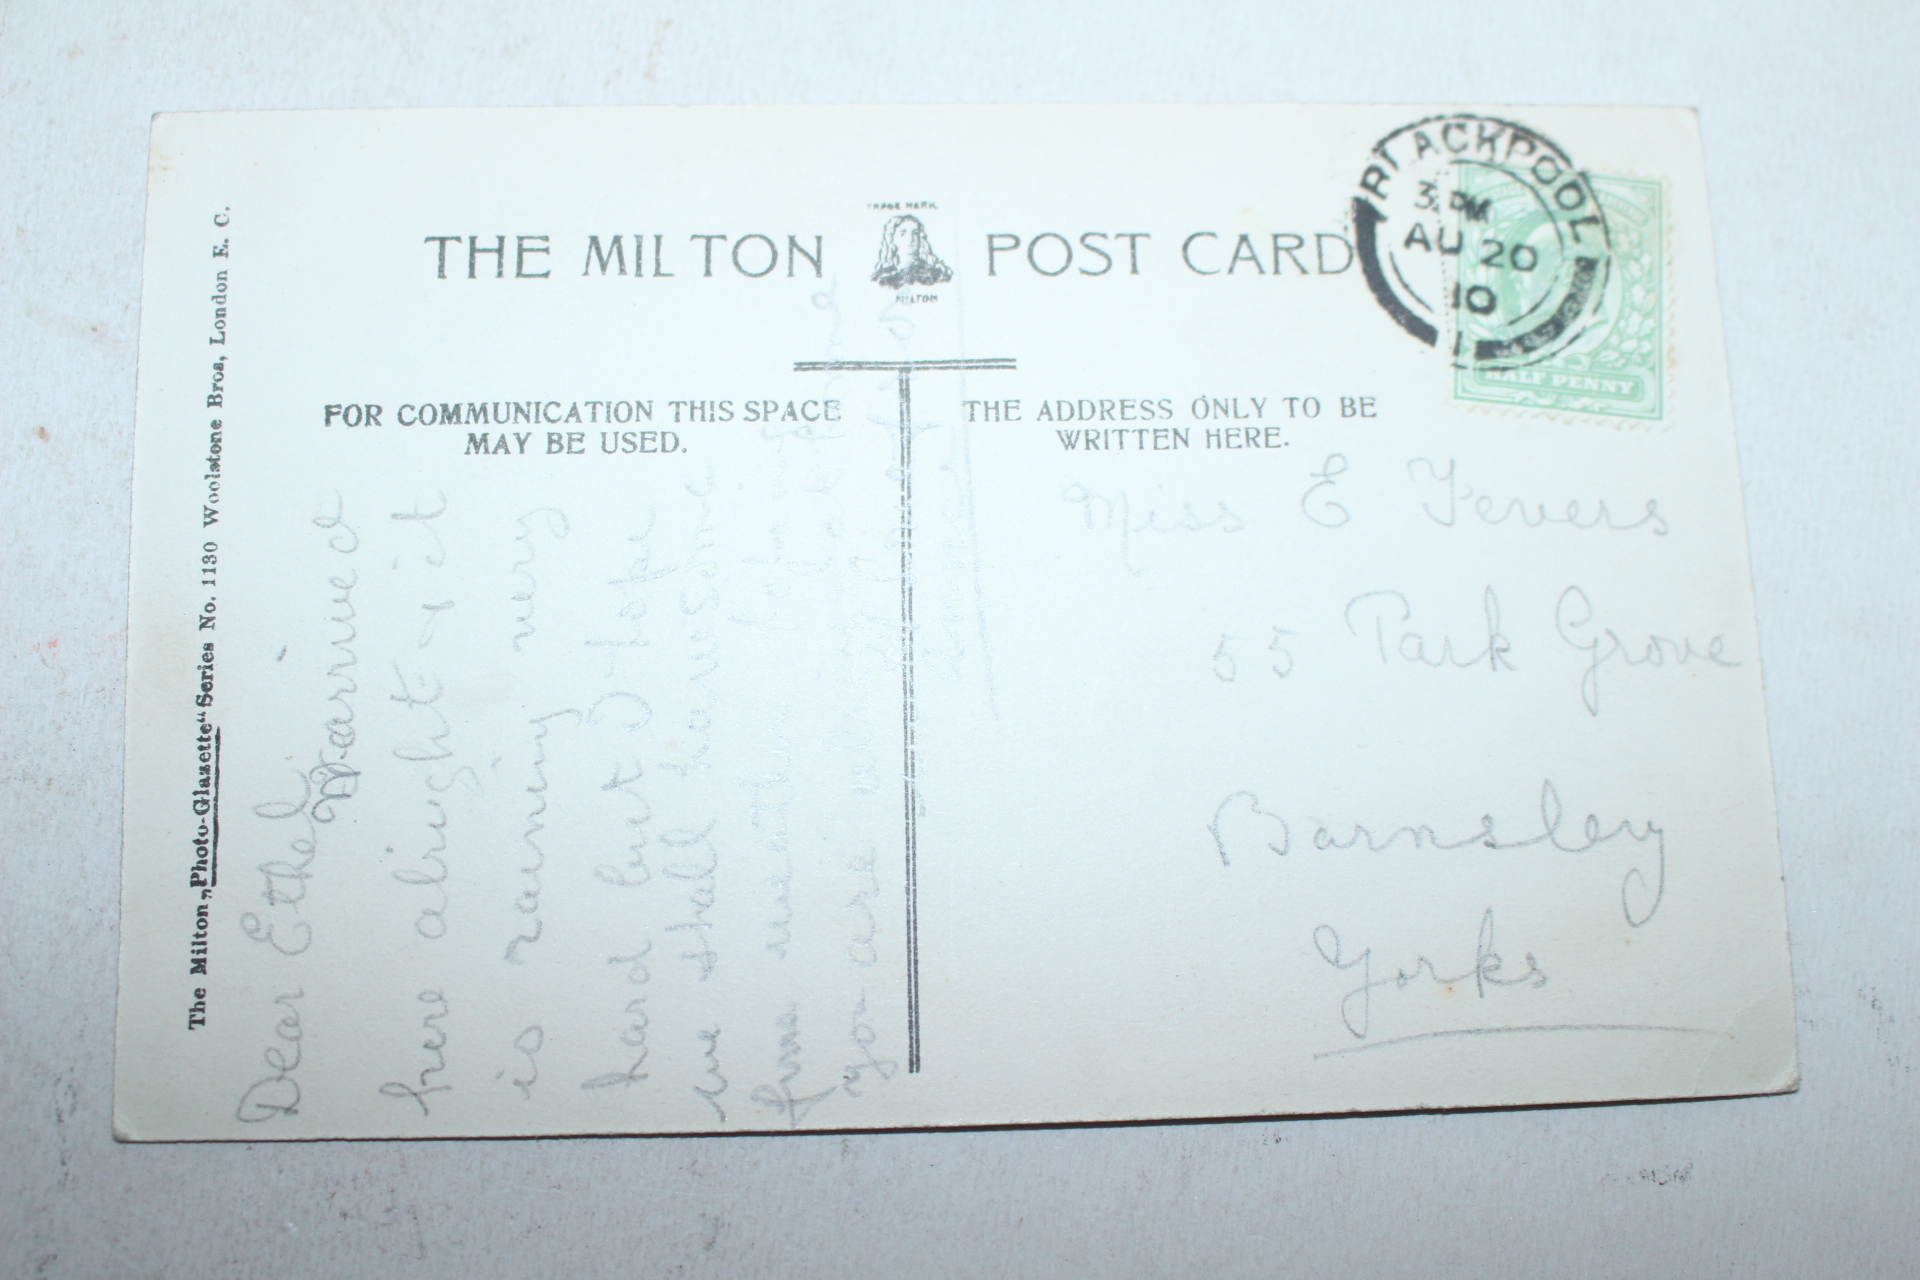 THE MILTON POST CARD
TRADE MARK.
MILTON
FOR COMMUNICATION THIS SPACE
MAY BE USED.
THE ADDRESS ONLY TO BE
WRITTEN HERE.
The Milton „Photo-Glazette“ Series No. 1130 Woolstone Bros, London E. C.
BLACKPOOL
3 PM
AU 20
10
1
HALF PENNY
Dear Ethel
Arrived
here alright & it
is raining very
hard but I hope
we shall have some
fine weather
you are
Miss E Tevers
55 Park Grove
Barnsley
Yorks